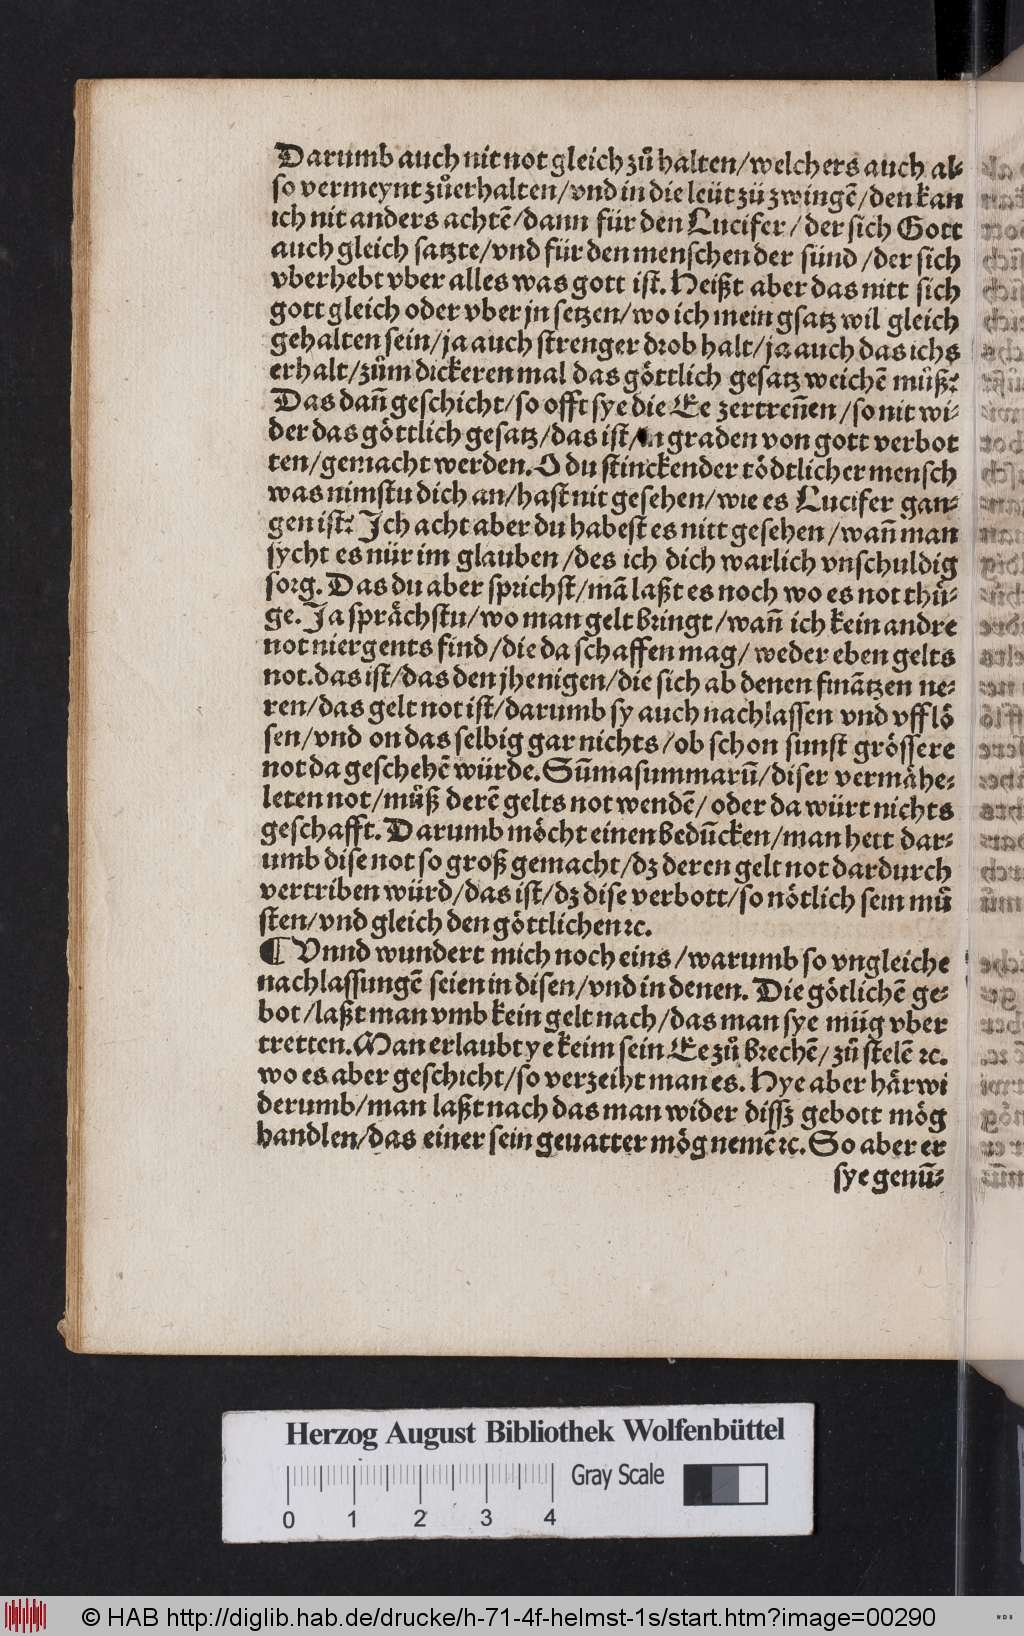 Darumb auch nit not gleich zů halten/welchers auch al⸗
so vermeynt zůerhalten/vnd in die leüt zü zwingē/den kan
ich nit anders achtē/dann für den Lucifer/der sich Gott
auch gleich satzte/vnd für den menschen der sünd/der sich
vberhebt vber alles was gott ist. Heißt aber das nitt sich
gott gleich oder vber jn setzen/wo ich mein gsatz wil gleich
gehalten sein/ja auch strenger drob halt/ja auch das ichs
erhalt/zům dickeren mal das göttlich gesatz weichē můß?
Das dañ geschicht/so offt sye die Ee zertreñen/so nit wi⸗
der das göttlich gesatz/das ist/in graden von gott verbot
ten/gemacht werden. O du stinckender tödtlicher mensch
was nimstu dich an/hast nit gesehen/wie es Lucifer gan⸗
gen ist? Ich acht aber du habest es nitt gesehen/wañ man
sycht es nür im glauben/des ich dich warlich vnschuldig
sorg. Das du aber sprichst/mā laßt es noch wo es not thü⸗
ge. Ja sprächstu/wo man gelt bringt/wañ ich kein andre
not niergents find/die da schaffen mag/weder eben gelts
not. das ist/das den jhenigen/die sich ab denen finātzen ne⸗
ren/das gelt not ist/darumb sy auch nachlassen vnd vfflö
sen/vnd on das selbig gar nichts/ob schon sunst grössere
not da geschehē würde. Sūmasummarū/diser vermähe⸗
leten not/můß derē gelts not wendē/oder da würt nichts
geschafft. Darumb möcht einen bedūcken/man hett dar⸗
umb dise not so groß gemacht/dz deren gelt not dardurch
vertriben würd/das ist/dz dise verbott/so nötlich sein mů
sten/vnd gleich den göttlichen ꝛc.
¶ Vnnd wundert mich noch eins/warumb so vngleiche
nachlassungē seien in disen/vnd in denen. Die götlichē ge⸗
bot/laßt man vmb kein gelt nach/das man sye müg vber
tretten. Man erlaubt ye keim sein Ee zů brechē/zů stelē ꝛc.
wo es aber geschicht/so verzeiht man es. Hye aber härwi
derumb/man laßt nach das man wider dissz gebott mög
handlen/das einer sein geuatter mög nemē ꝛc. So aber er
sye genū⸗
Herzog August Bibliothek Wolfenbüttel
Gray Scale
0 1 2 3 4
© HAB http://diglib.hab.de/drucke/h-71-4f-helmst-1s/start.htm?image=00290